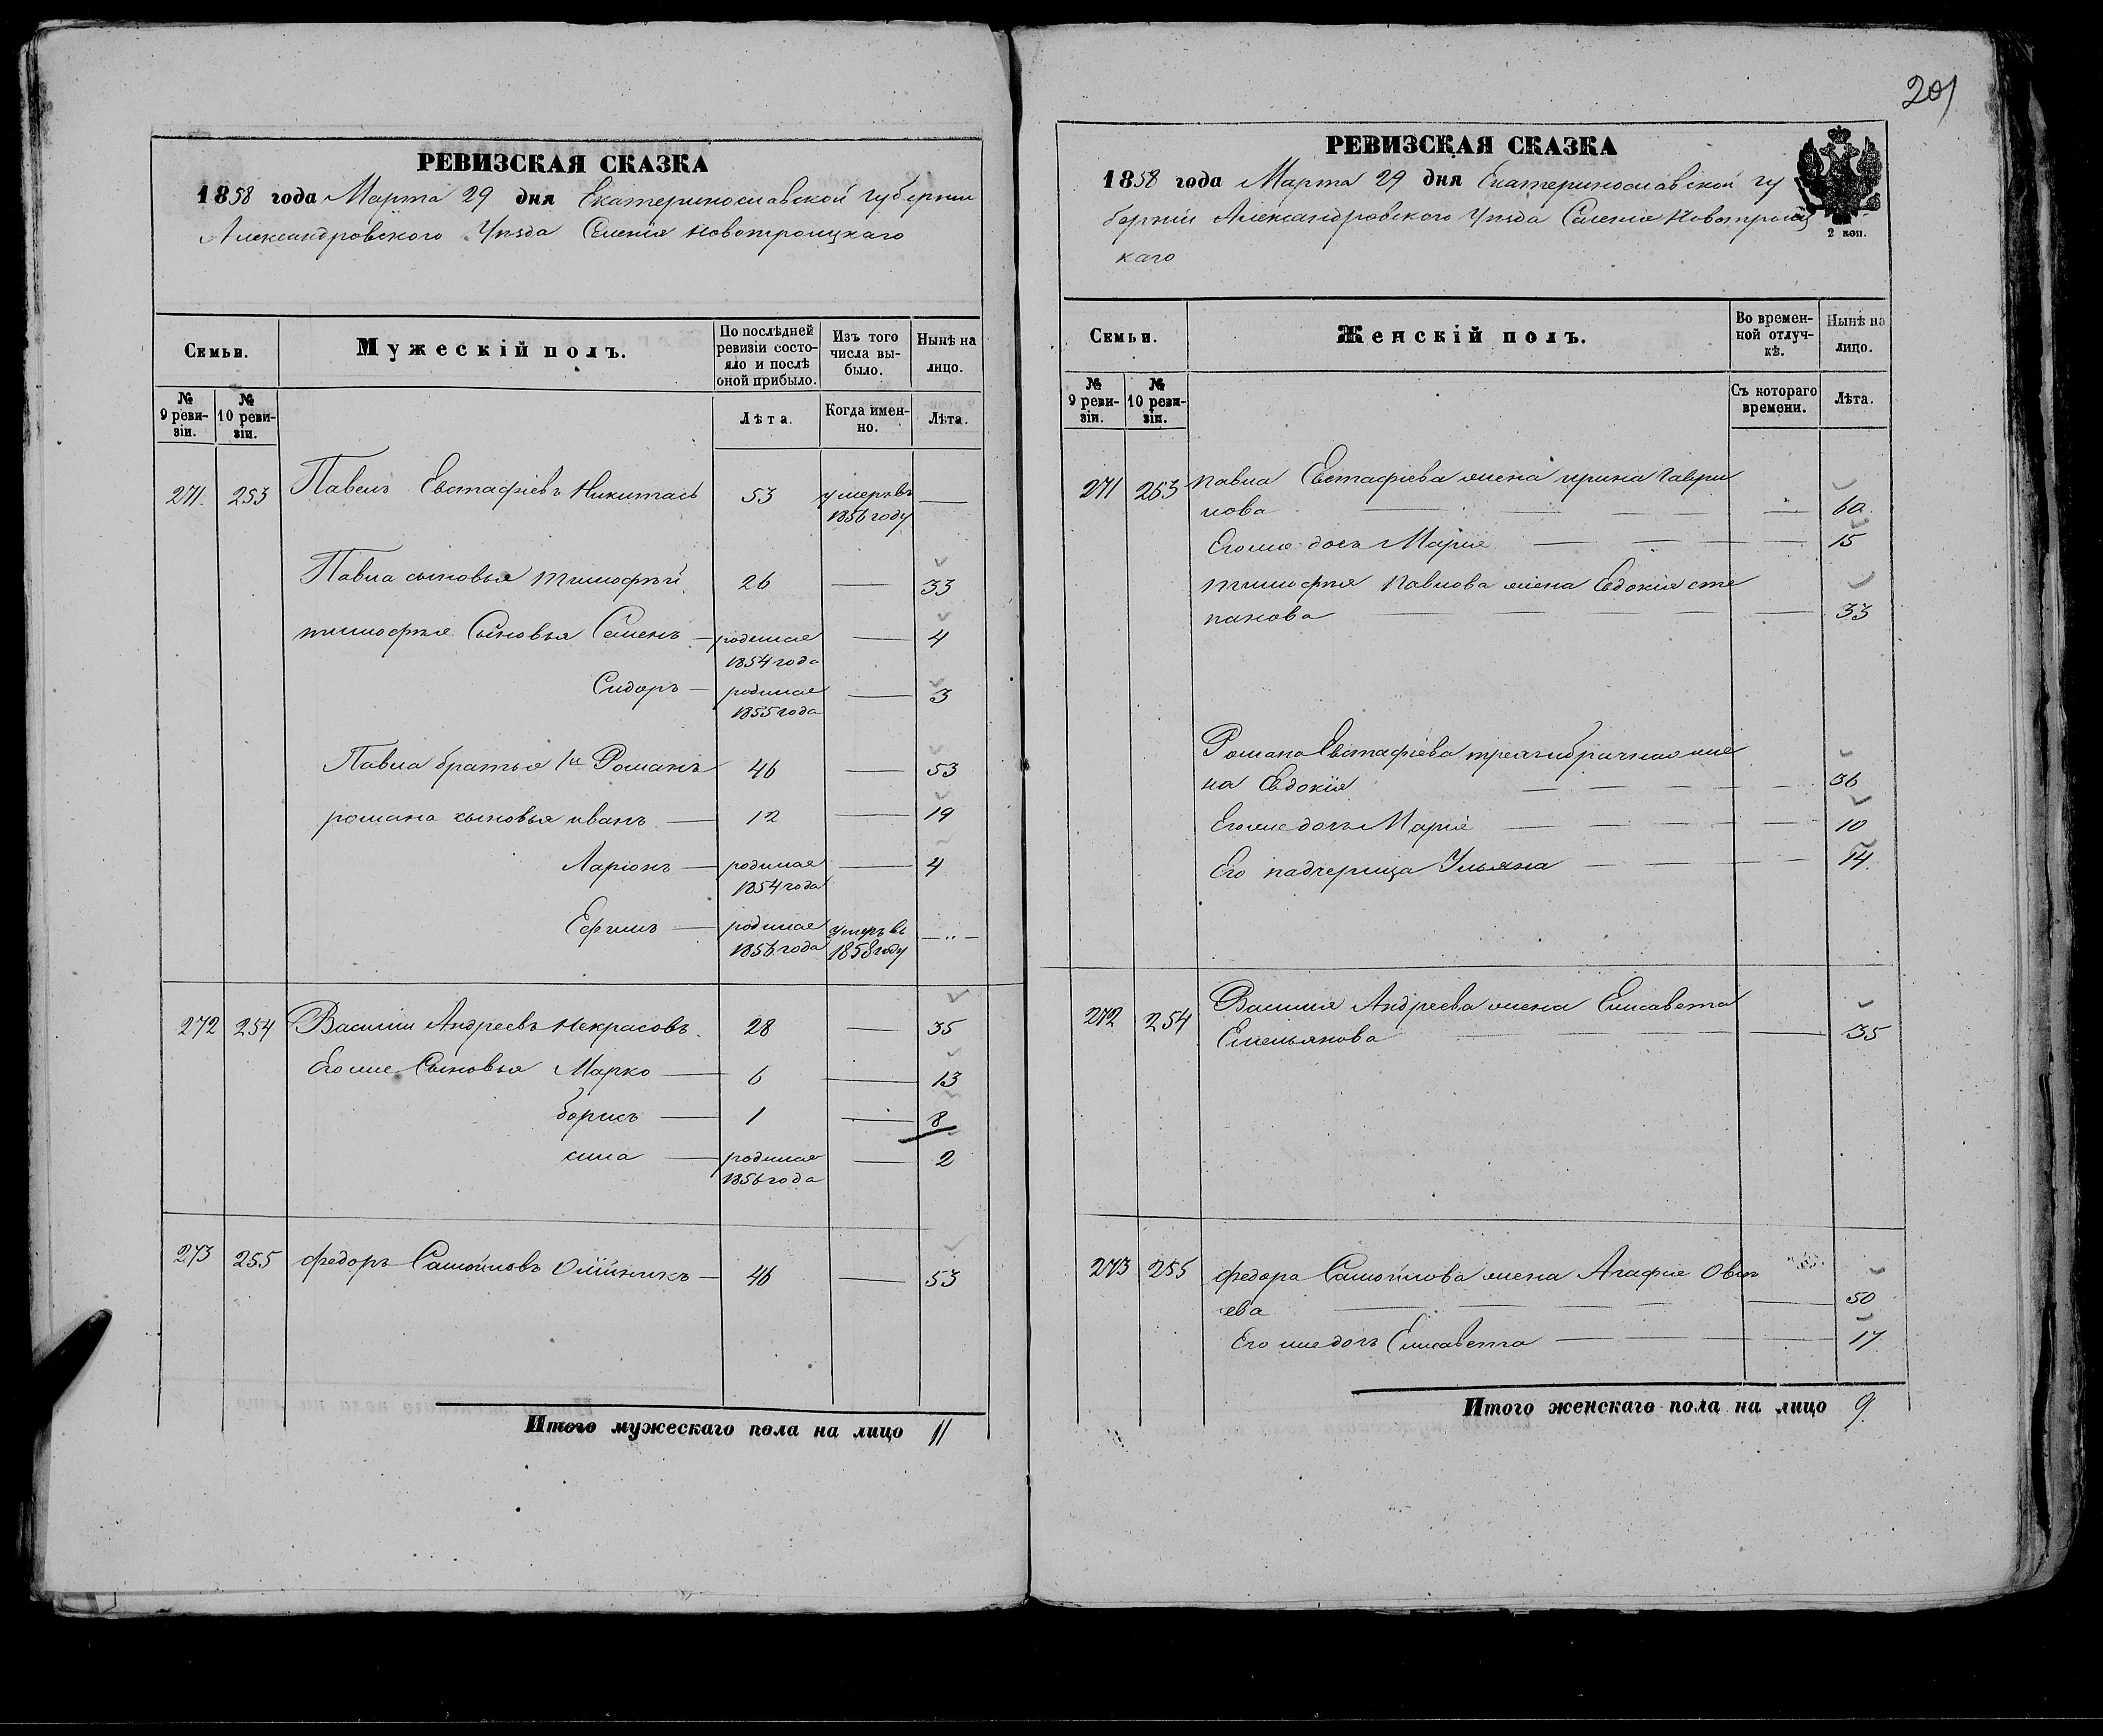 РЕВИЗСКАЯ СКАЗКА
1858 года Марта 29 дня Екатеринославской губернии
Александровского Уѣзда Селенія Новотроицкаго
Семьи.
Мужескій полъ.
По послѣдней ревизіи состояло и послѣ оной прибыло.
Изъ того числа выбыло.
Нынѣ на лицо.
№ 9 ревизіи.
№ 10 ревизіи.
Лѣта.
Когда именно.
Лѣта.
271. 253 Павелъ Евстафіевъ Никитась 53 умеръ въ —
1856 году
Павла сыновья тимофѣй 26 — 33
тимофѣя Сыновья Семенъ — родился — 4
1854 года
Сидоръ — родился — 3
1855 года
Павла братья 1й Романъ 46 — 53
романа сыновья иванъ — 12 — 19
Ларіонъ — родился — 4
1854 года
Ефимъ — родился умеръ въ —
1856 года 1858 году
272 254 Василій Андреевъ Некрасовъ 28 — 35
Его же Сыновья Марко — 6 — 13
борисъ — 1 — 8
сила — родился — 2
1856 года
273 255 федоръ Самойловъ Олійникъ — 46 — 53
Итого мужескаго пола на лицо 11
201
РЕВИЗСКАЯ СКАЗКА
1858 года Марта 29 дня Екатеринославской гу
берніи Александровского Уѣзда Селенія Новотроиц
каго
2 коп.
Семьи.
Женскій полъ.
Во временной отлучкѣ.
Нынѣ на лицо.
№ 9 ревизіи.
№ 10 ревизіи.
Съ котораго времени.
Лѣта.
271 253 павла Евстафіева жена ирина Гаври
лова — 60
Его же дочь Марія — 15
тимофѣя павлова жена Евдокія сте
панова — 33
Романа Евстафіева третьебрачная же
на Евдокія — 36
Его же дочь Марія — 10
Его падчерица Ульяна — 14.
272 254 Василія Андреева жена Елисавета
Емельянова — 35
273 255 федора Самойлова жена Агафія Овсѣ
ева — 50
Его же дочь Елисавета — 17
Итого женскаго пола на лицо 9.